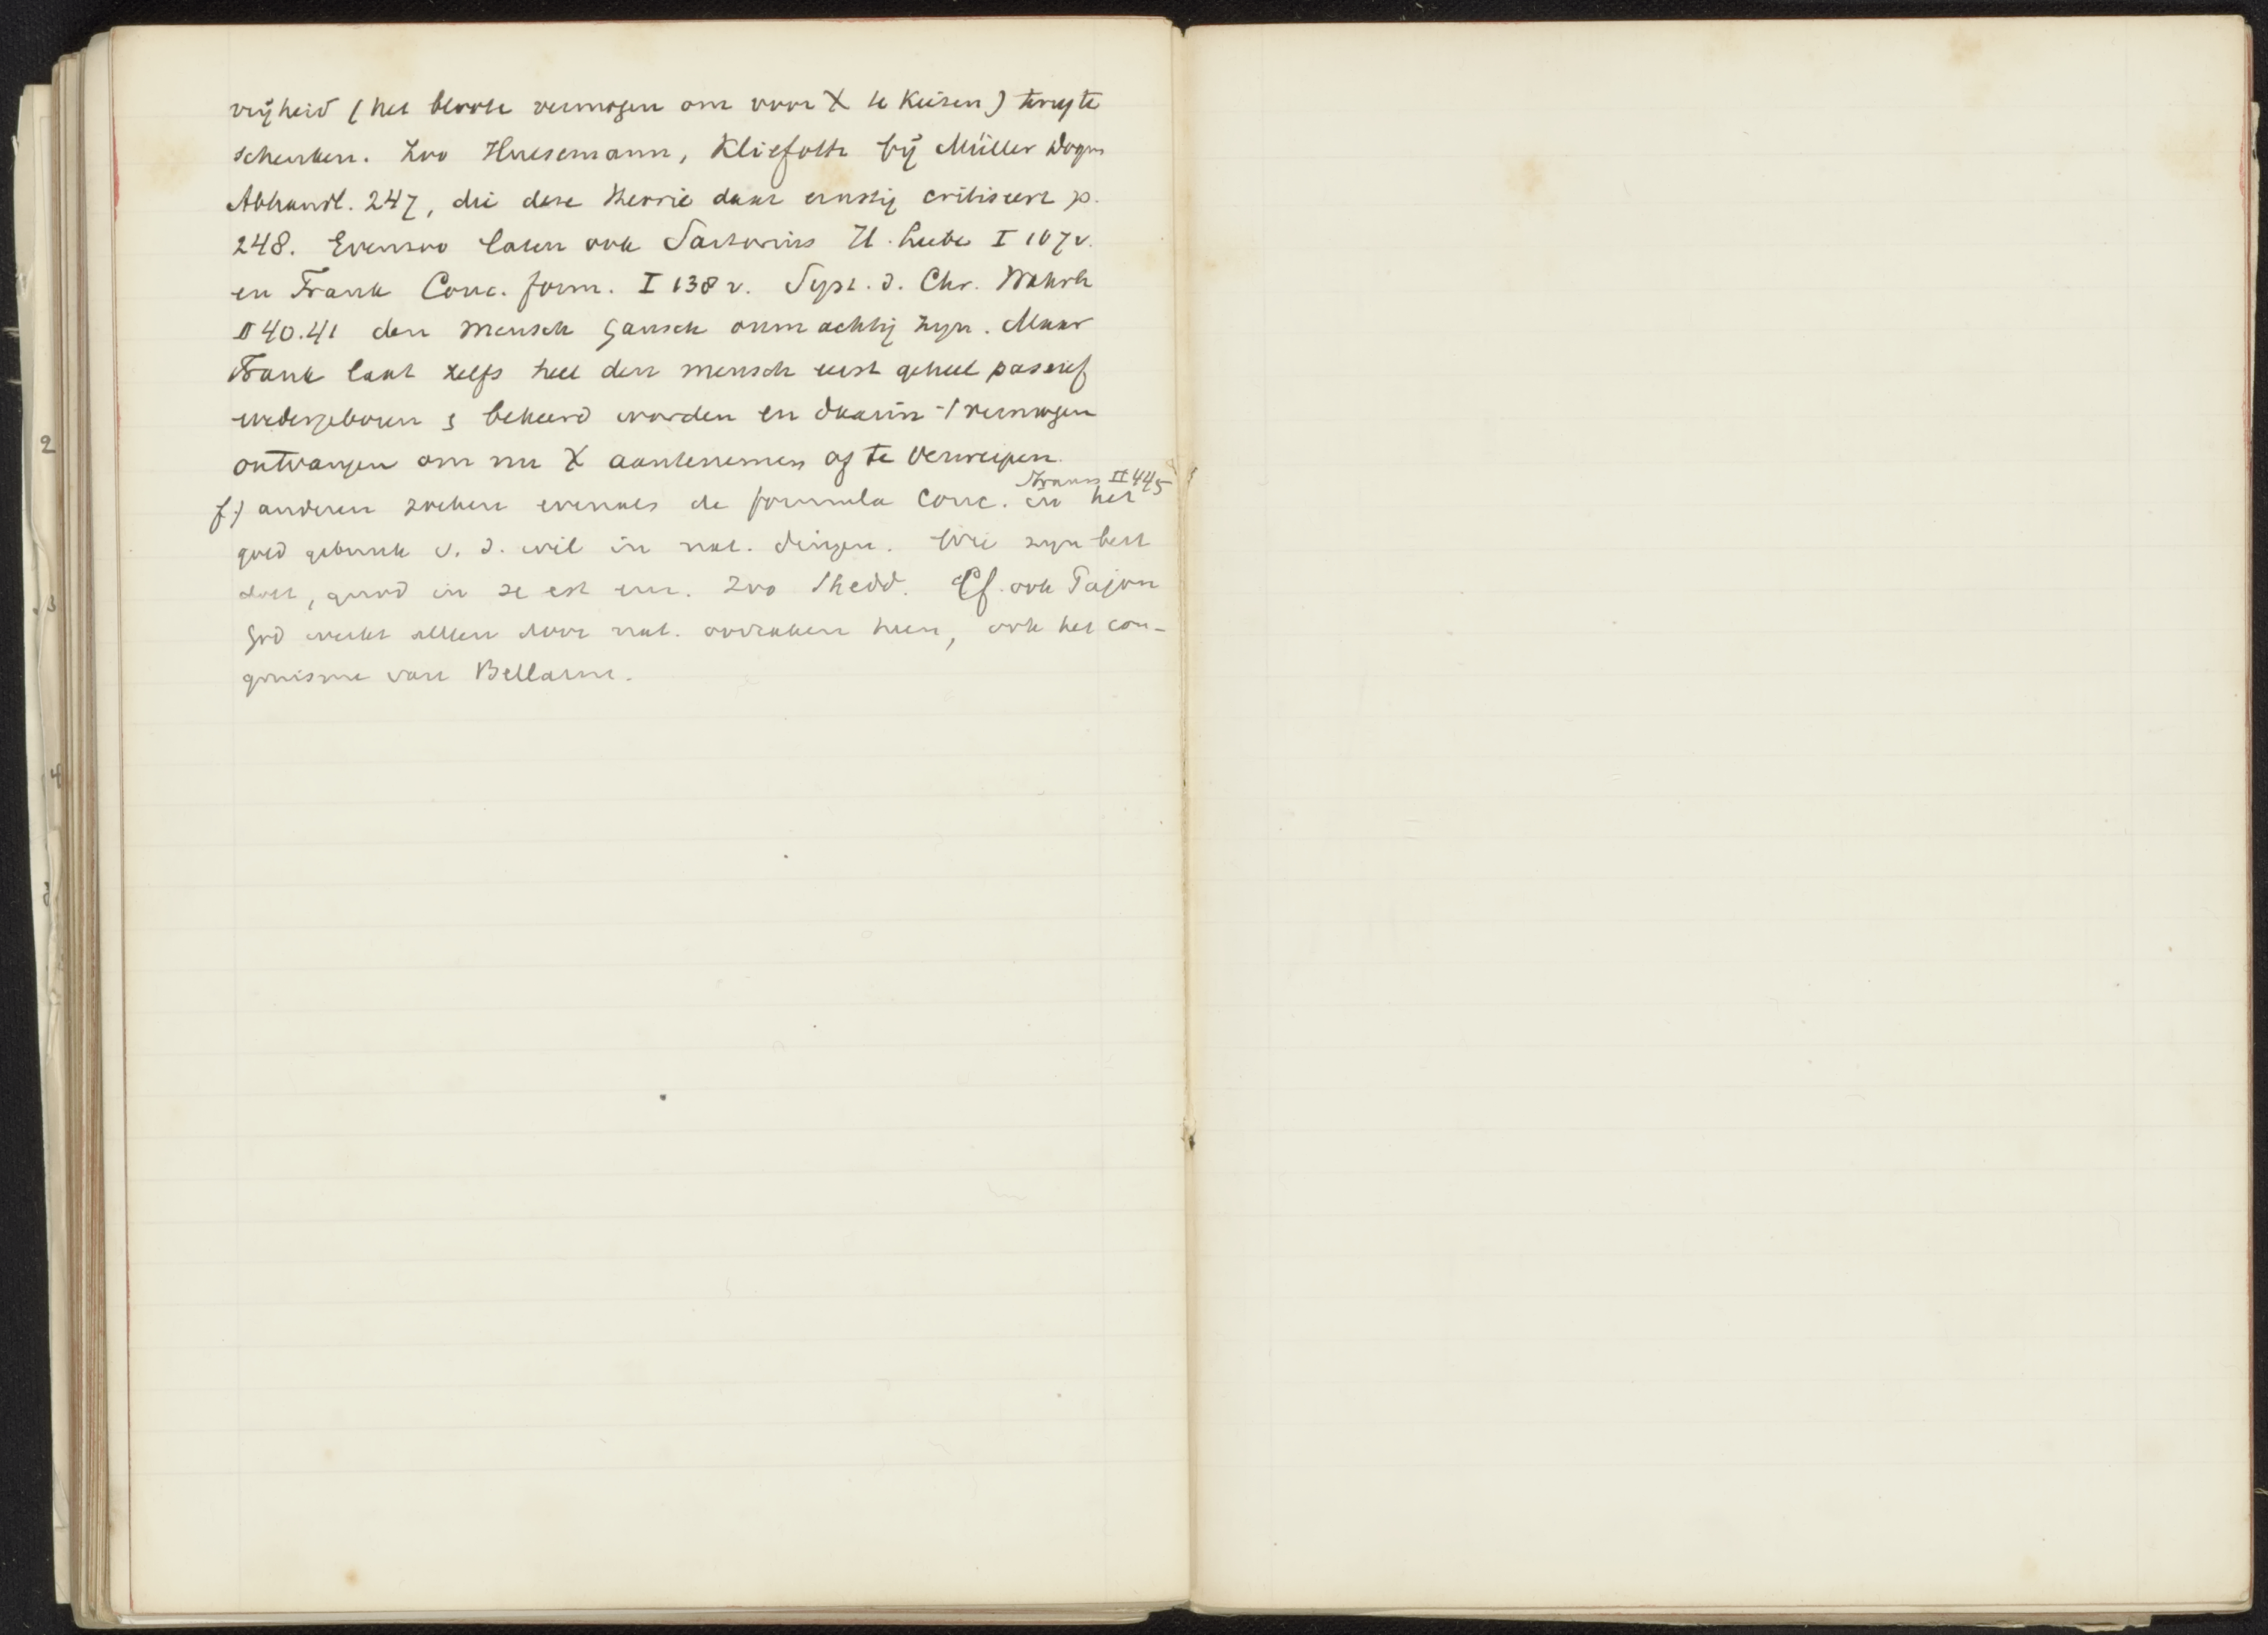 vrijheid (het bloote vermogen om voor X te kiezen) terug te
schenken. Zoo Huelsemann, Kliefoth bij Müller Dogm
Abhandl. 247, die deze theorie daar ernstig critiseert p.
248. Evenzoo laten ook Sartorius H. Liebe I 107 v.
en Frank Conc. form. I 138 v. Syst. d. Chr. Wahrh
II 40.41 den mensch gansch onmachtig zijn. Maar
Frank laat zelfs heel den mensch eerst geheel passief
wedergeboren & bekeerd worden en daarin 't vermogen
ontvangen om nu X aantenemen of te verwerpen.
Strauss II 445
f) anderen zoeken evenals de formula Conc. in het
goed gebruik v. d. wil in nat. dingen. Wie zijn best
doet, quod in se est enz. Zoo Shedd. Cf. ook Pajon
God werkt alleen door nat. oorzaken heen, ook het con-
gruisme van Bellarm.
2
3
4